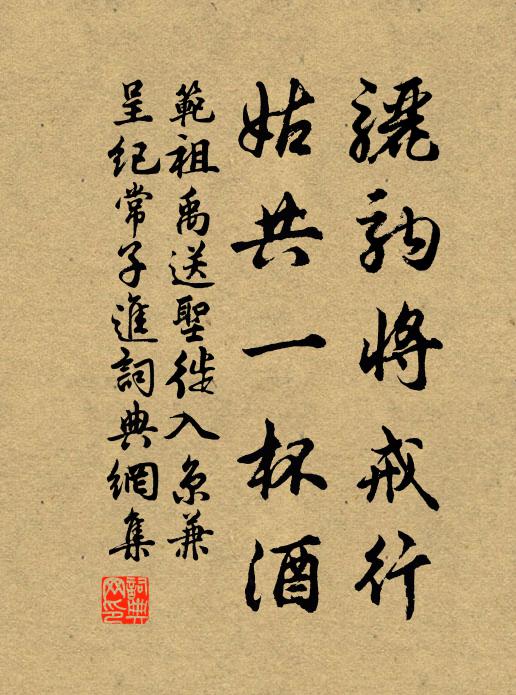 驪駒將戒行
姑共一杯酒
範祖禹送聖徒入京兼
呈紀常子進詞典網集
詞典
网印